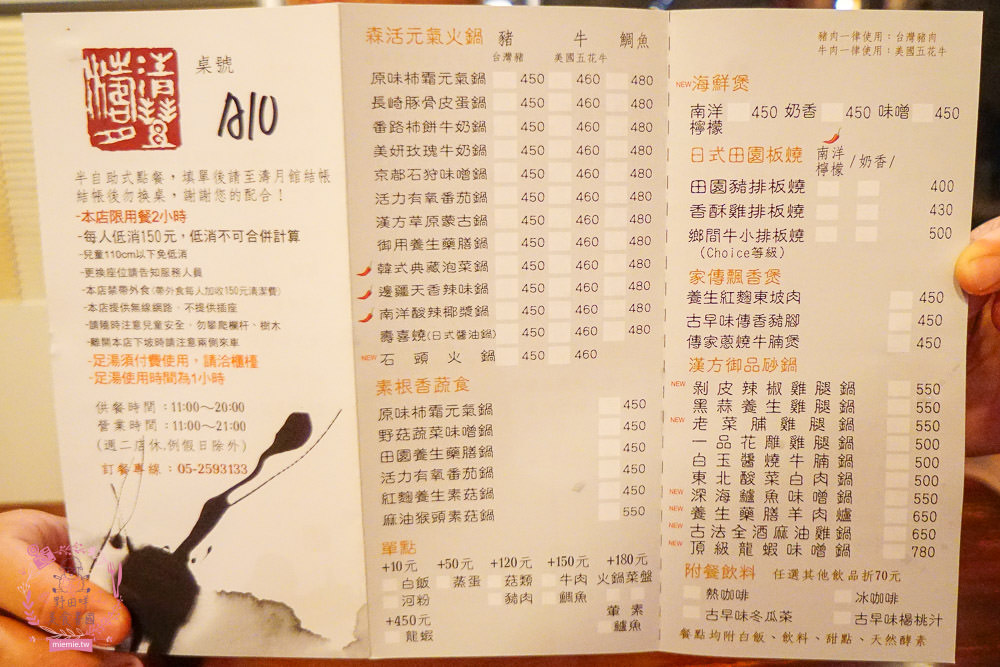 桌號
A10
半自助式點餐，填單後請至濤月館結帳
結帳後勿換桌，謝謝您的配合！
-本店限用餐2小時
-每人低消150元，低消不可合併計算
-兒童110cm以下免低消
-更換座位請告知服務人員
-本店禁帶外食(帶外食每人加收150元清潔費)
-本店提供無線網路，不提供插座
-請隨時注意兒童安全，勿攀爬欄杆、樹木
-離開本店下坡時請注意兩側來車
-足湯須付費使用，請洽櫃檯
-足湯使用時間為1小時
供餐時間：11:00～20:00
營業時間：11:00～21:00
(週二店休,例假日除外)
訂餐專線：05-2593133
森活元氣火鍋 豬 牛 鯛魚
台灣豬 美國五花牛
原味柿霸元氣鍋 450 460 480
長崎豚骨皮蛋鍋 450 460 480
番路柿餅牛奶鍋 450 460 480
美妍玫瑰牛奶鍋 450 460 480
京都石狩味噌鍋 450 460 480
活力有氧番茄鍋 450 460 480
漢方草原蒙古鍋 450 460 480
御用養生藥膳鍋 450 460 480
韓式典藏泡菜鍋 450 460 480
邊疆天香辣味鍋 450 460 480
南洋酸辣椰漿鍋 450 460 480
壽喜燒(日式醬油鍋) 450 460 480
NEW 石頭火鍋 450 460
素根香蔬食
原味柿霸元氣鍋 450
野菇蔬菜味噌鍋 450
田園養生藥膳鍋 450
活力有氧番茄鍋 450
紅麴養生素菇鍋 450
麻油猴頭素菇鍋 550
單點
+10元 +50元 +120元 +150元 +180元
白飯 蒸蛋 菇類 牛肉 火鍋菜盤
河粉 豬肉 鯛魚
+450元 葷 素
龍蝦 鱸魚
豬肉一律使用：台灣豬肉
牛肉一律使用：美國五花牛
NEW 海鮮煲
南洋檸檬 450 奶香 450 味噌 450
日式田園板燒 南洋檸檬 /奶香/
田園豬排板燒 400
香酥雞排板燒 430
鄉間牛小排板燒 500
(Choice等級)
家傳飄香煲
養生紅麴東坡肉 450
古早味傳香豬腳 450
傳家蔥燒牛腩煲 450
漢方御品砂鍋
NEW 剝皮辣椒雞腿鍋 550
黑蒜養生雞腿鍋 550
NEW 老菜脯雞腿鍋 550
一品花雕雞腿鍋 500
白玉醬燒牛腩鍋 500
東北酸菜白肉鍋 500
NEW 深海鱸魚味噌鍋 550
NEW 養生藥膳羊肉爐 650
NEW 古法全酒麻油雞鍋 650
NEW 頂級龍蝦味噌鍋 780
附餐飲料 任選其他飲品折70元
熱咖啡 冰咖啡
古早味冬瓜茶 古早味楊桃汁
餐點均附白飯、飲料、甜點、天然酵素
miemie.tw